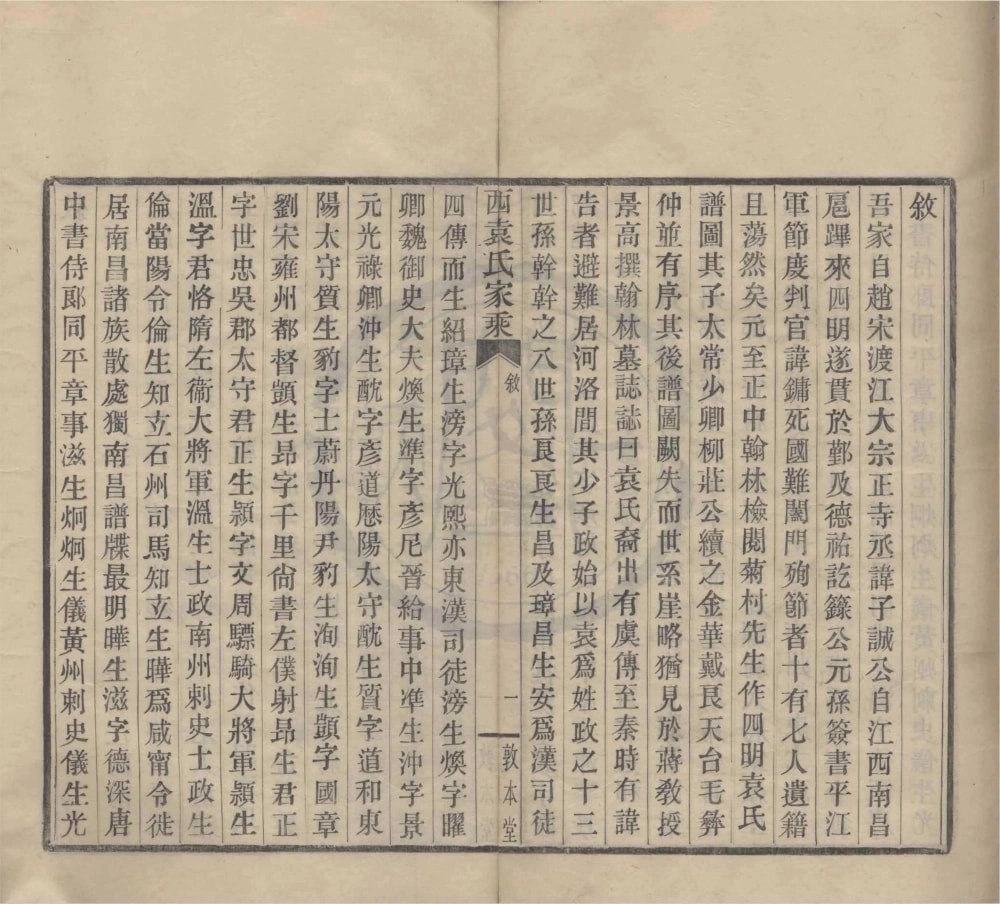 敘
吾家自趙宋渡江大宗正寺丞諱子誠公自江西南昌
扈蹕來四明遂貫於鄞及德祐訖籙公元孫簽書平江
軍節度判官諱鏞死國難闔門殉節者十有七人遺籍
且蕩然矣元至正中翰林檢閱菊村先生作四明袁氏
譜圖其子太常少卿柳莊公續之金華戴良天台毛彝
仲並有序其後譜圖闕失而世系崖略猶見於蔣敎授
景高撰翰林墓誌誌曰袁氏裔出有虞傳至秦時有諱
告者避難居河洛間其少子政始以袁爲姓政之十三
世孫幹幹之八世孫良良生昌及璋昌生安爲漢司徒
西袁氏家乘
敘
一
敦本堂
四傳而生紹璋生滂字光熙亦東漢司徒滂生煥字曜
卿魏御史大夫煥生準字彥尼晉給事中準生沖字景
元光祿卿沖生酖字彥道厯陽太守酖生質字道和東
陽太守質生豹字士蔚丹陽尹豹生洵洵生顗字國章
劉宋雍州都督顗生昂字千里尙書左僕射昂生君正
字世忠吳郡太守君正生潁字文周驃騎大將軍潁生
溫字君恪隋左衞大將軍溫生士政南州刺史士政生
倫當陽令倫生知立石州司馬知立生曄爲咸甯令徙
居南昌諸族散處獨南昌譜牒最明曄生滋字德深唐
中書侍郞同平章事滋生炯炯生儀黃州刺史儀生光